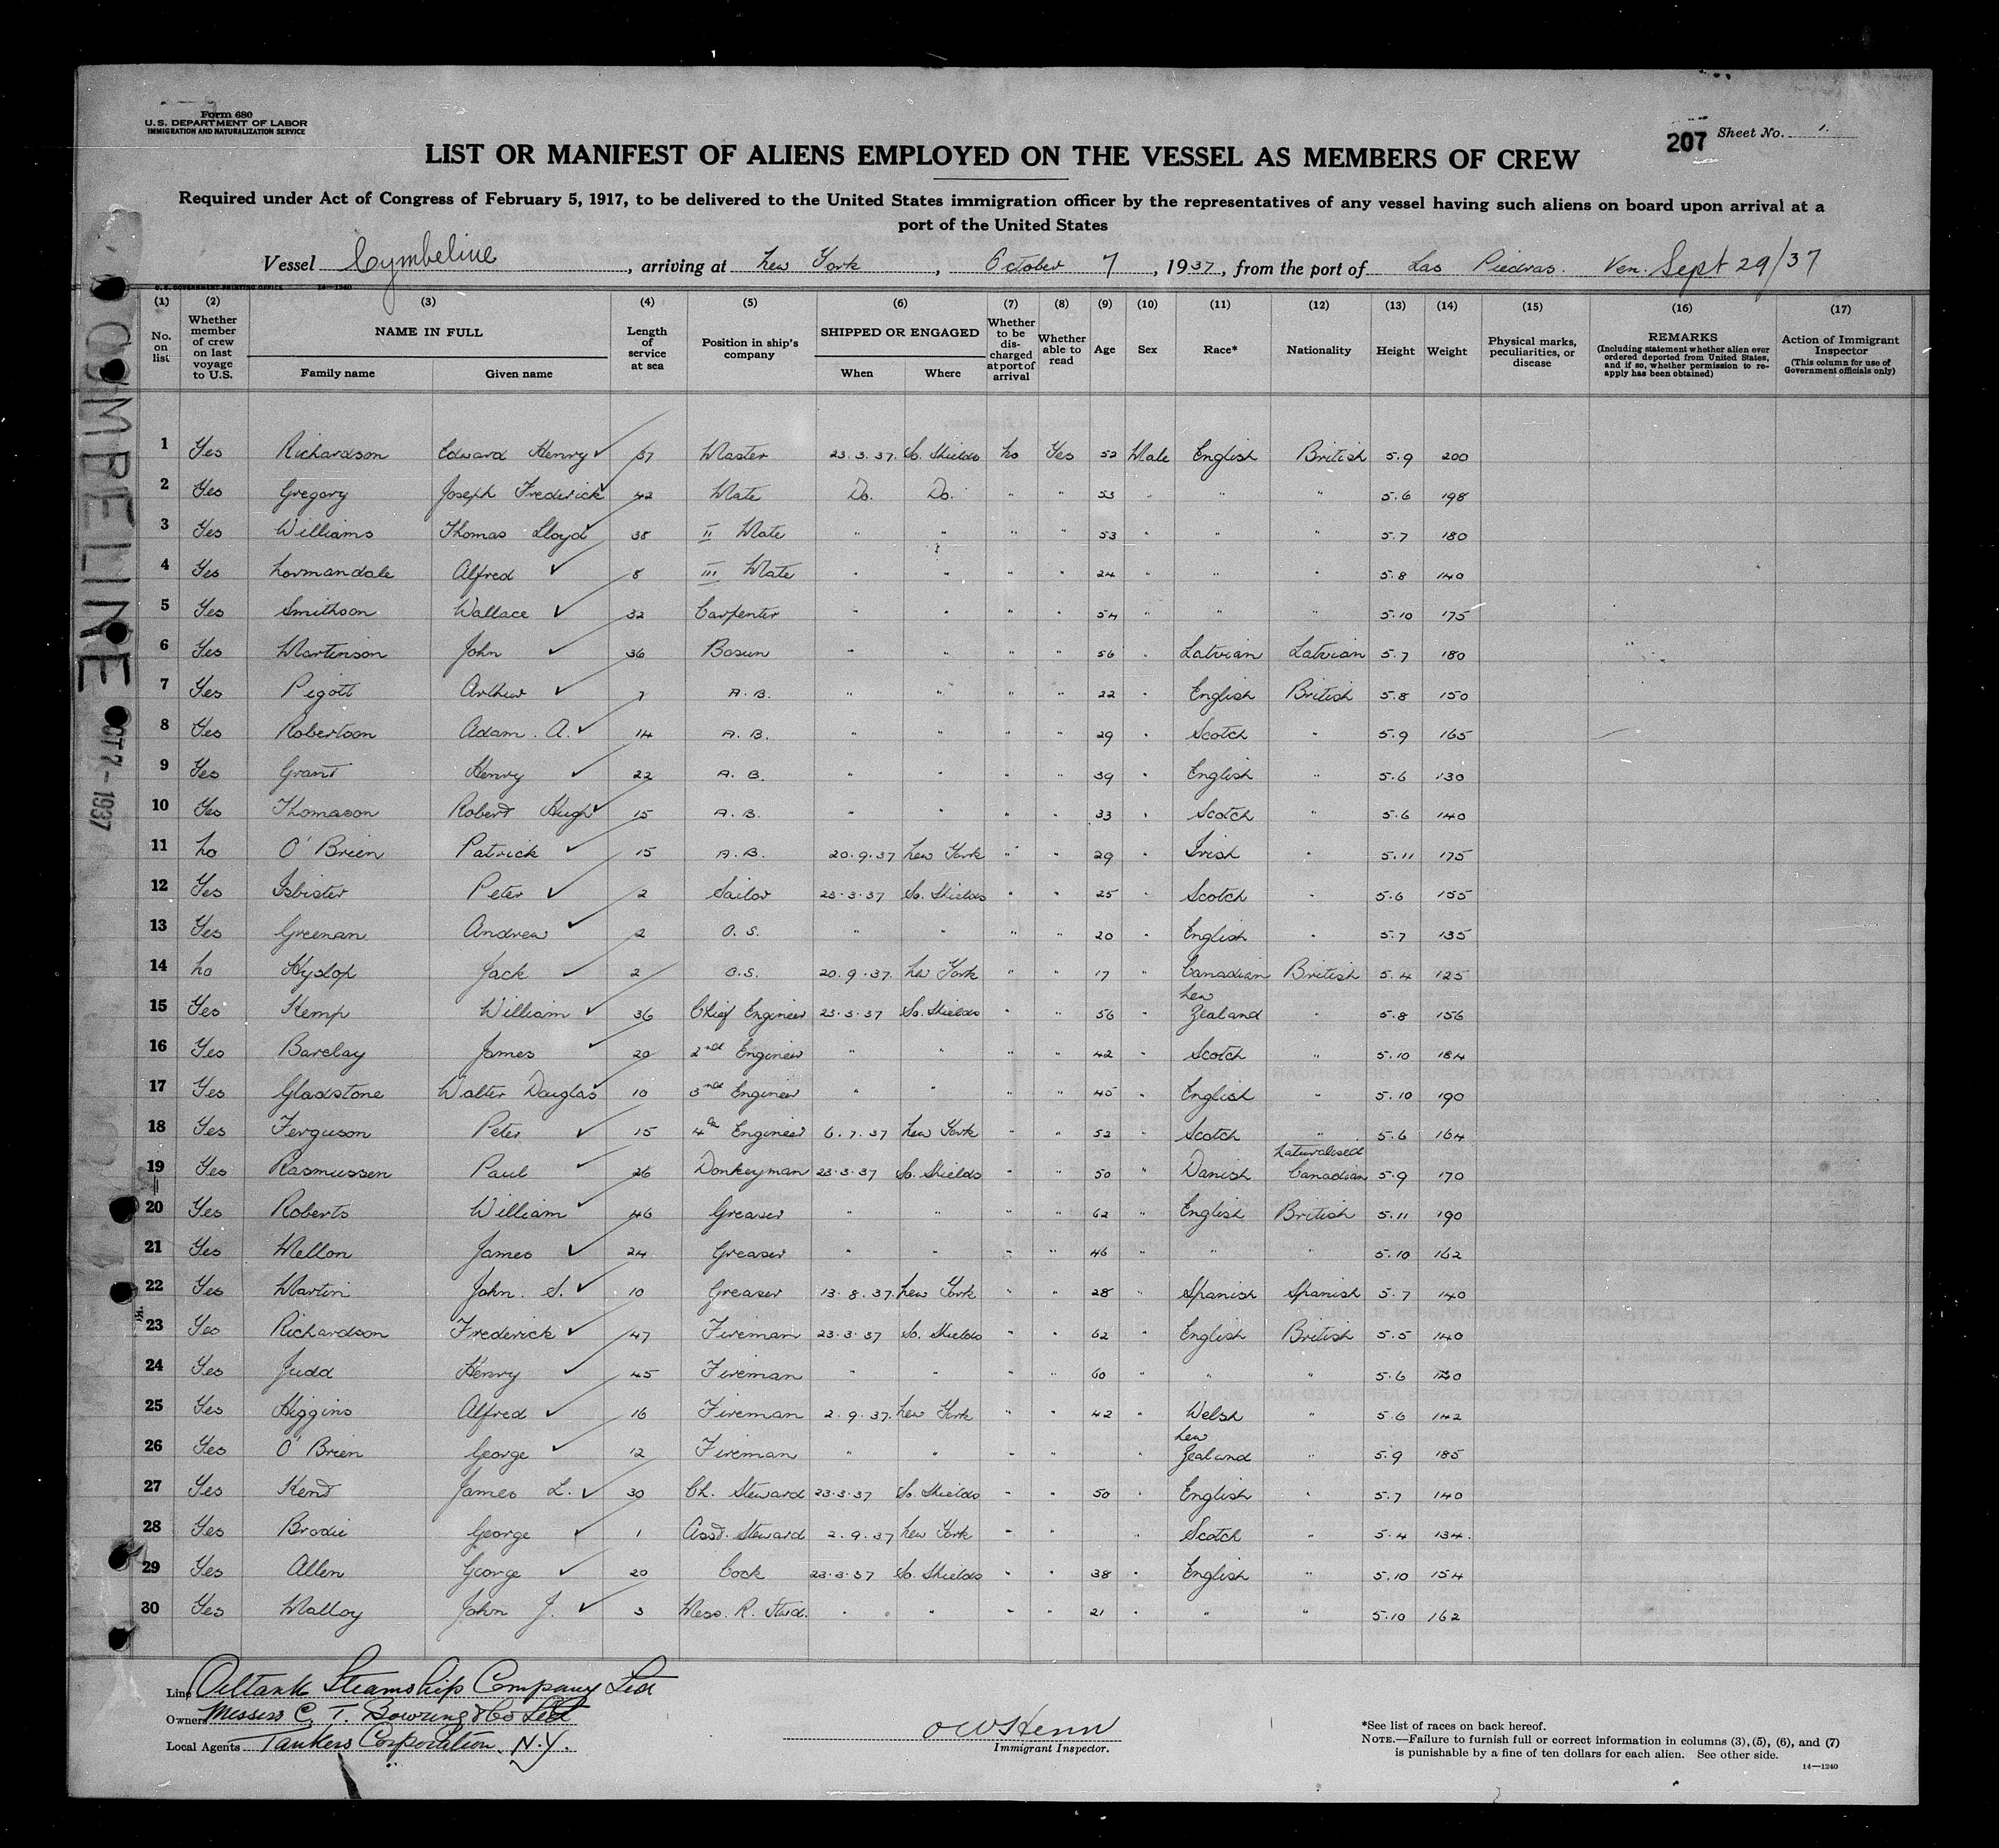 Form 680
U.S. DEPARTMENT OF LABOR
IMMIGRATION AND NATURALIZATION SERVICE
207 Sheet No. 1.
LIST OR MANIFEST OF ALIENS EMPLOYED ON THE VESSEL AS MEMBERS OF CREW
Required under Act of Congress of February 5, 1917, to be delivered to the United States immigration officer by the representatives of any vessel having such aliens on board upon arrival at a
port of the United States
Vessel Cymbeline, arriving at New York, October 7, 1937, from the port of Las Piedras. Ven. Sept 29/37
U.S. GOVERNMENT PRINTING OFFICE 14—1240
(1) (2) (3) (4) (5) (6) (7) (8) (9) (10) (11) (12) (13) (14) (15) (16) (17)
No. on list
Whether member of crew on last voyage to U.S.
NAME IN FULL
Family name
Given name
Length of service at sea
Position in ship's company
SHIPPED OR ENGAGED
When
Where
Whether to be discharged at port of arrival
Whether able to read
Age
Sex
Race*
Nationality
Height
Weight
Physical marks, peculiarities, or disease
REMARKS
(Including statement whether alien ever ordered deported from United States, and if so, whether permission to re-apply has been obtained)
Action of Immigrant Inspector
(This column for use of Government officials only)
1 Yes Richardson Edward Henry ✓ 37 Master 23.3.37. So. Shields No Yes 52 Male English British 5.9 200
2 Yes Gregory Joseph Frederick ✓ 42 Mate Do. Do. " " 53 " " " 5.6 198
3 Yes Williams Thomas Lloyd ✓ 38 II Mate " " " " 53 " " " 5.7 180
4 Yes Normandale Alfred ✓ 8 III Mate " " " " 24 " " " 5.8 140
5 Yes Smithson Wallace ✓ 32 Carpenter " " " " 54 " " " 5.10 175
6 Yes Martinson John ✓ 36 Bosun " " " " 56 " Latvian Latvian 5.7 180
7 Yes Pigott Arthur ✓ 7 A.B. " " " " 22 " English British 5.8 150
8 Yes Robertson Adam. A. ✓ 14 A.B. " " " " 29 " Scotch " 5.9 165
9 Yes Grant Henry ✓ 22 A.B. " " " " 39 " English " 5.6 130
10 Yes Thomason Robert Hugh ✓ 15 A.B. " " " " 33 " Scotch " 5.6 140
11 No O'Brien Patrick ✓ 15 A.B. 20.9.37 New York " " 29 " Irish " 5.11 175
12 Yes Isbister Peter ✓ 2 Sailor 23.3.37 So. Shields " " 25 " Scotch " 5.6 155
13 Yes Greenan Andrew ✓ 2 O.S. " " " " 20 " English " 5.7 135
14 No Hyslop Jack ✓ 2 O.S. 20.9.37. New York " " 17 " Canadian British 5.4 125
15 Yes Kemp William ✓ 36 Chief Engineer 23.3.37 So. Shields " " 56 " New Zealand " 5.8 156
16 Yes Barclay James ✓ 20 2nd Engineer " " " " 42 " Scotch " 5.10 184
17 Yes Gladstone Walter Douglas ✓ 10 3rd Engineer " " " " 45 " English " 5.10 190
18 Yes Ferguson Peter ✓ 15 4th Engineer 6.7.37 New York " " 52 " Scotch " 5.6 164
19 Yes Rasmussen Paul ✓ 26 Donkeyman 23.3.37 So. Shields " " 50 " Danish Naturalised Canadian 5.9 170
20 Yes Roberts William ✓ 46 Greaser " " " " 62 " English British 5.11 190
21 Yes Mellon James ✓ 24 Greaser " " " " 46 " " " 5.10 162
22 Yes Martin John. S. ✓ 10 Greaser 13.8.37. New York " " 28 " Spanish Spanish 5.7 140
23 Yes Richardson Frederick ✓ 47 Fireman 23.3.37 So. Shields " " 62 " English British 5.5 140
24 Yes Judd Henry ✓ 45 Fireman " " " " 60 " " " 5.6
25 Yes Higgins Alfred ✓ 16 Fireman 2.9.37. New York " " 42 " Welsh " 5.6 142
26 Yes O'Brien George ✓ 12 Fireman " " " " " New Zealand " 5.9 185
27 Yes Kent James L. ✓ 30 Ch. Steward 23.3.37 So. Shields " " 50 " English " 5.7 140
28 Yes Brodie George ✓ 1 Asst. Steward 2.9.37 New York " " " Scotch " 5.4 134.
29 Yes Allen George ✓ 20 Cook 23.3.37 So. Shields " " 38 " English " 5.10 154
30 Yes Malloy John J. ✓ 3 Mess. R. Stwd. " " " " 21 " " " 5.10 162
CYMBELINE
OCT 7-1937
Line Oiltank Steamship Company Ltd
Owners Messrs C. T. Bowring & Co Ltd
Local Agents Tankers Corporation. N.Y.
O W Henn
Immigrant Inspector.
*See list of races on back hereof.
NOTE.—Failure to furnish full or correct information in columns (3), (5), (6), and (7)
is punishable by a fine of ten dollars for each alien. See other side.
14—1240